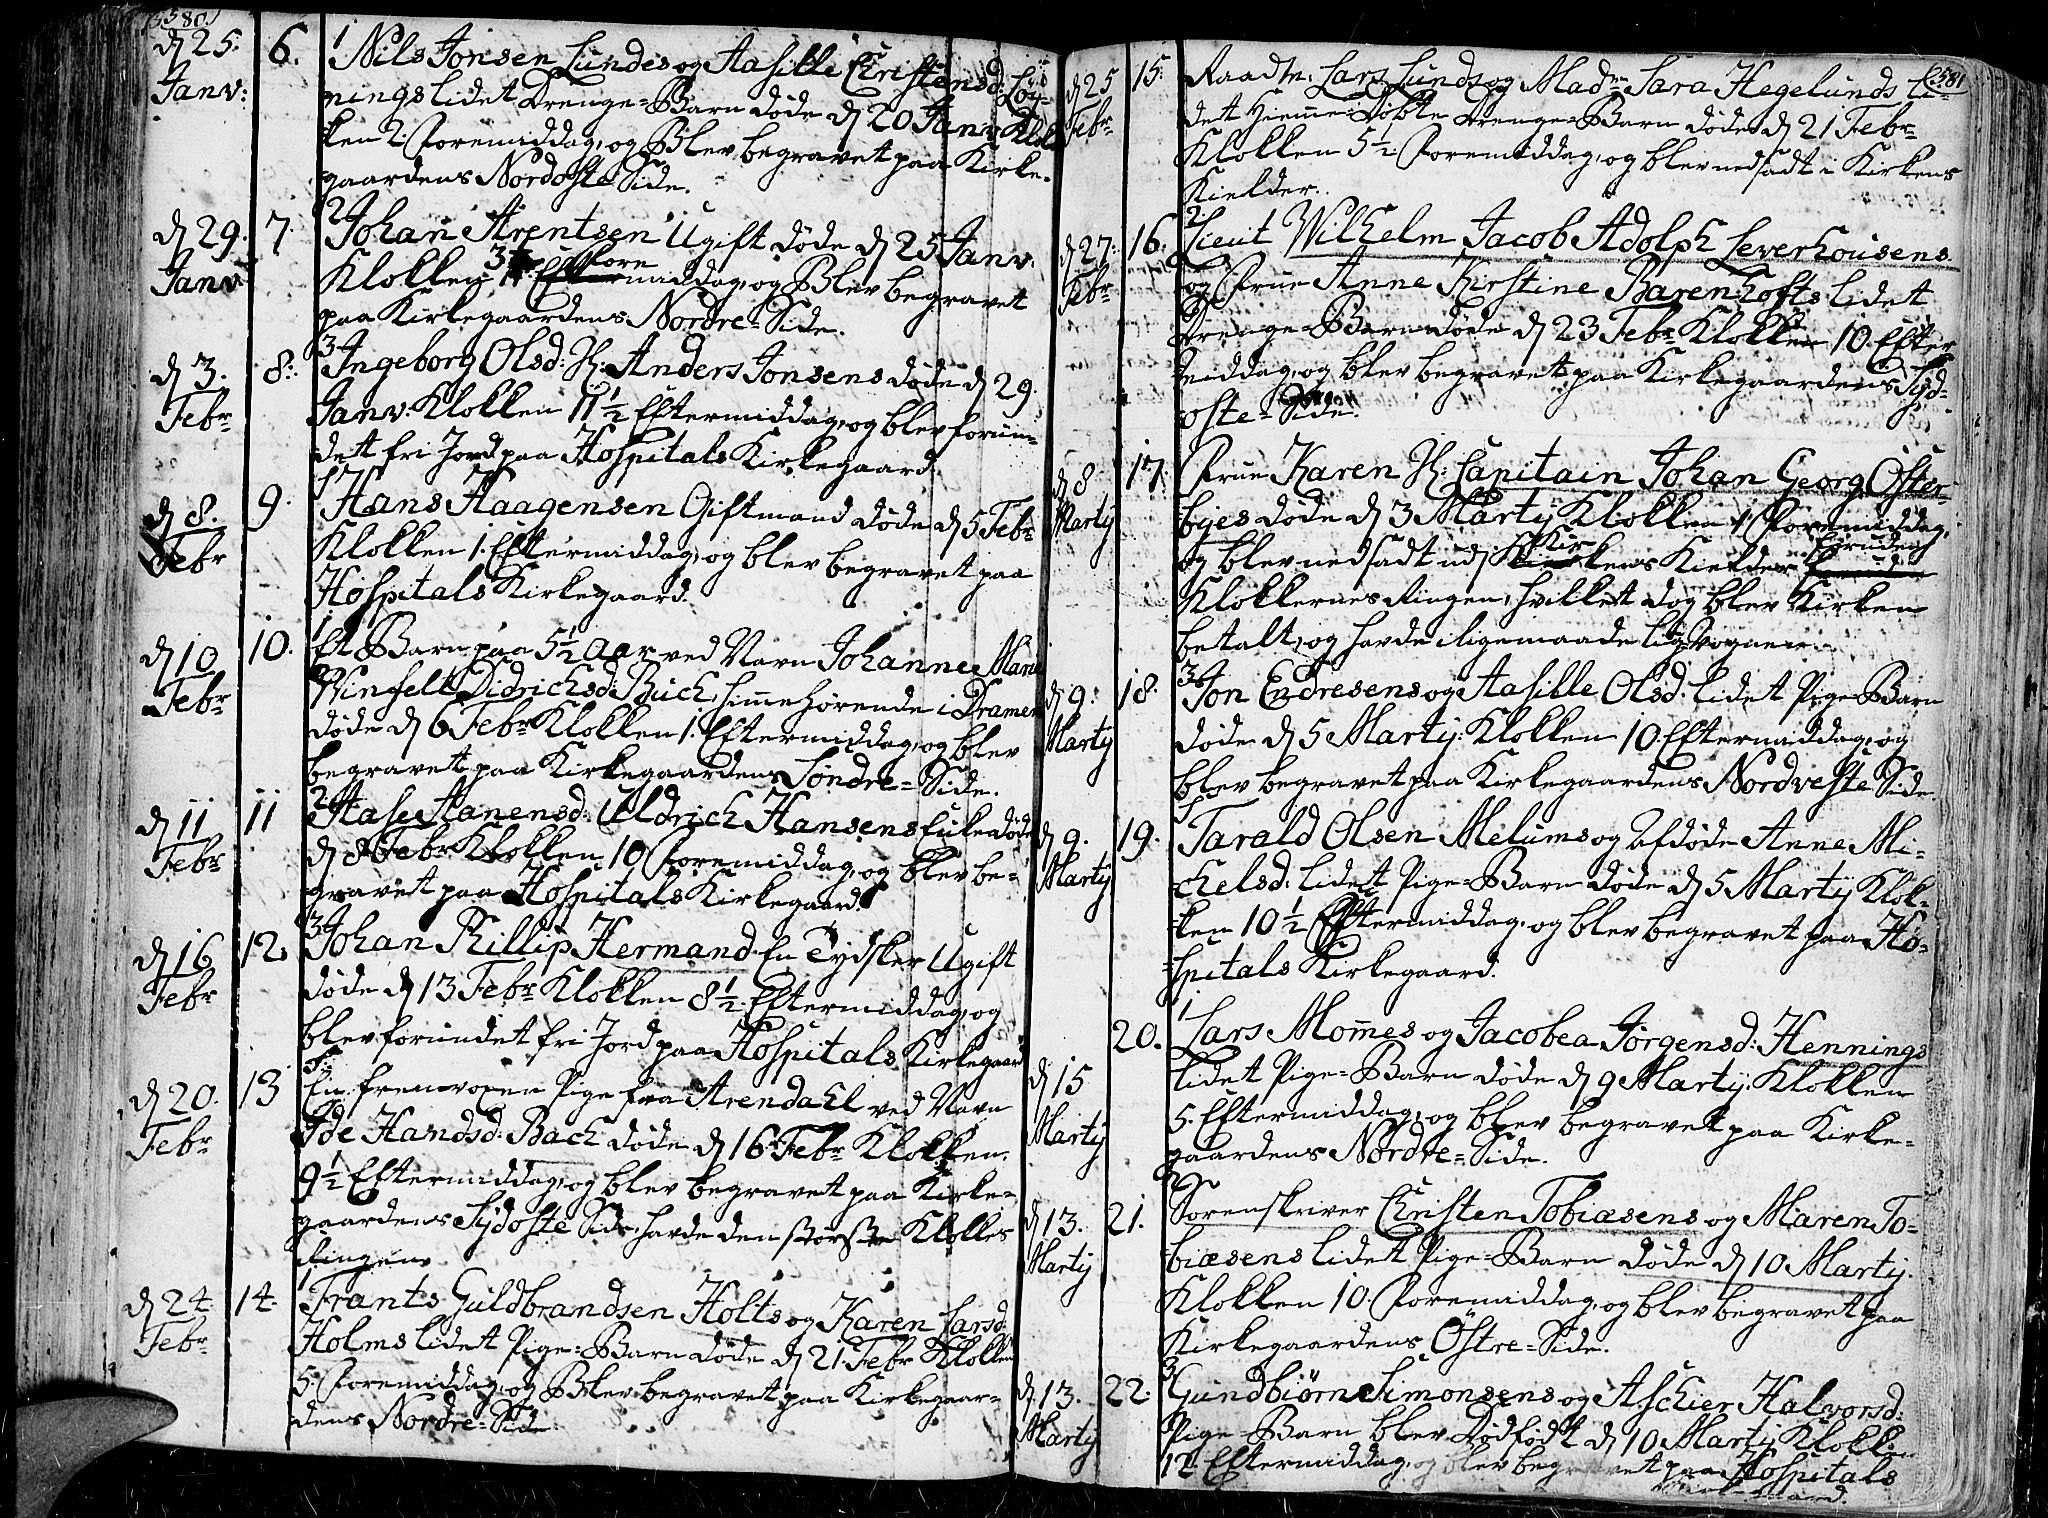 580.
d 25: 6. 1 Nils Jonsen Lundes og Aasille Christensd: Löy-
Janv: nings lidet Drenge-Barn döde d 20 Janv: Klok
ken 2. Foremiddag, og Blev begravet paa Kirke-
gaardens Nordoste Side.
d 29. 7. 2 Johan Arentsen Ugift döde d 25 Janv.
Janv: Klokken 3 Fore middag, og Blev begravet
paa Kirkegaardens Nordre-Side.
d 3. 8: 3 Ingeborg Olsd: H: Anders Jonsens döde d 29.
Febr Janv: Klokken 11½ Eftermiddag, og blev forun-
det fri Jord paa Hospitals Kirkegaard.
d 8. 9. 1 Hans Haagensen Giftmand döde d 5 Febr
Febr Klokken 1. Eftermiddag, og blev begravet paa
Hospitals Kirkegaard.
d 10 10. 1 Et Barn paa 5½ Aar ved Navn Johanne Marie
Febr Didrichsd: Buch, himmehörende i Dramen
döde d 6 Febr Klokken 1. Eftermiddag, og blev
begravet paa Kirkegaardens Söndre-Side.
d 11 11 2 Aase Aanensd: Uldrich Hansens Enke döde
Febr d 8 Febr Klokken 10 Foremiddag, og blev be-
gravet paa Hospitals Kirkegaard.
d 16 12. 3 Johan Phillip Hermand. En Tydsker Ugift
Febr döde d 13 Febr Klokken 8½. Eftermiddag, og
blev forundet fri Jord paa Hospitals Kirkegaard
d 20. 13 En fremvoxen Pige fra Arendahl ved Navn
Febr Ide Handsd: Bach döde d 16 Febr Klokken.
9½ Eftermiddag, og blev begravet paa Kirke-
gaardens Sydoste Side, havde den storste Klokke
Ringen.
d 24. 14. 1 Frants Guldbrandsen Holts og Karen Larsd
Febr Holms lidet Pige-Barn döde d 21. Febr Klokken
5. Foremiddag, og Blev begravet paa Kirkegaar-
dens Nordre-Side.
581
d 25 15. Raadm: Lars Lunds og Madm Sara Hegelunds li-
Febr det Hiemme-Döbte Drenge-Barn döde d 21 Febr
Klokken 5½. Foremiddag, og blev nedsadt i Kirkens
Kielder.
d 27: 16. 2 Lieut Wilhelm Jacob Adolph Leverhousens
Febr og Frue Anne Kirstine Barenhofts lidet
Drenge-Barn döde d 23 Febr Klokken 10. Efter
middag, og blev begravet paa Kirkegaardens Syd-
oste-Side.
d 8 17. Frue Karen H: Capitain Johan Georg Öster-
Martij byes döde d 3 Martij Klokken 1. Foremiddag,
og blev nedsadt udj Kir kens Kielder foruden
Klokkernes Ringen, hvilket dog blev Kirken
betalt, og havde iligemaade Liig Vognen.
d 9. 18. 3 Jon Endresens og Aasille Olsd: lidet Pige-Barn
Martij döde d 5 Martij: Klokken 10. Eftermiddag, og
blev begravet paa Kirkegaardens Nordveste Side.
d 9. 19. Tarald Olsen Melums og Afdöde Anne Mi-
Martij chelsd: lidet Pige-Barn döde d 5 Martij Klok-
ken 10½ Eftermiddag, og blev begravet paa Ho-
spitals Kirkegaard.
20. 1 Lars Mom̄es og Jacobea Jörgensd: Hennings
d 15 lidet Pige-Barn döde d 9 Martij: Klokken
Martij 5. Eftermiddag, og blev begravet paa Kirke-
gaardens Nordre-Side.
d 13. 21. 2 Sorenskriver Christen Tobiæsens og Maren To-
Martij biæsens lidet Pige-Barn döde d 10 Martij.
Klokken 10. Foremiddag, og blev begravet paa
Kirkegaardens Östre-Side.
d 13. 22. 3 Gundbiörn Simonsens og Aschier Halvorsd:
Martij Pige-Barn blev Dödfödt d 10 Martij Klokken
12 Eftermiddag, og blev begravet paa Hospitals
Kirkegaard.